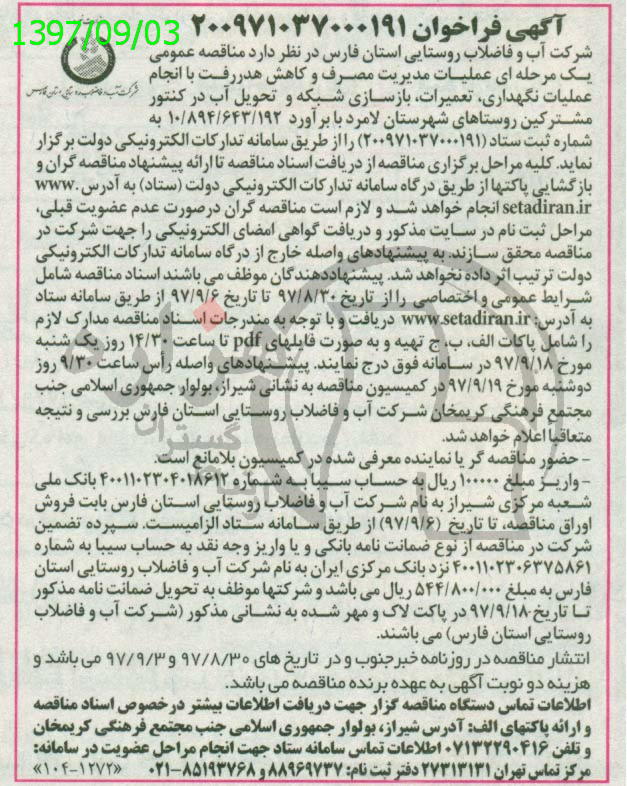 1397/09/03
آگهی فراخوان ۲۰۰۹۷۱۰۳۷۰۰۰۱۹۱
شرکت آب و فاضلاب روستایی استان فارس در نظر دارد مناقصه عمومی
یک مرحله ای عملیات مدیریت مصرف و کاهش هدررفت با انجام
شرکت آب و فاضلاب روستایی استان فارس
عملیات نگهداری، تعمیرات، بازسازی شبکه و تحویل آب در کنتور
مشترکین روستاهای شهرستان لامرد با برآورد ۱۰/۸۹۴/۶۴۳/۱۹۲ به
شماره ثبت ستاد (۲۰۰۹۷۱۰۳۷۰۰۰۱۹۱) را از طریق سامانه تدارکات الکترونیکی دولت برگزار
نماید. کلیه مراحل برگزاری مناقصه از دریافت اسناد مناقصه تا ارائه پیشنهاد مناقصه گران و
بازگشایی پاکتها از طریق درگاه سامانه تدارکات الکترونیکی دولت (ستاد) به آدرس www.
setadiran.ir انجام خواهد شد و لازم است مناقصه گران درصورت عدم عضویت قبلی،
مراحل ثبت نام در سایت مذکور و دریافت گواهی امضای الکترونیکی را جهت شرکت در
مناقصه محقق سازند. به پیشنهادهای واصله خارج از درگاه سامانه تدارکات الکترونیکی
دولت ترتیب اثر داده نخواهد شد. پیشنهاددهندگان موظف می باشند اسناد مناقصه شامل
شرایط عمومی و اختصاصی را از تاریخ ۹۷/۸/۳۰ تا تاریخ ۹۷/۹/۶ از طریق سامانه ستاد
به آدرس: www.setadiran.ir دریافت و با توجه به مندرجات اسناد مناقصه مدارک لازم
را شامل پاکات الف، ب، ج تهیه و به صورت فایلهای pdf تا ساعت ۱۴/۳۰ روز یک شنبه
مورخ ۹۷/۹/۱۸ در سامانه فوق درج نمایند. پیشنهادهای واصله رأس ساعت ۹/۳۰ روز
دوشنبه مورخ ۹۷/۹/۱۹ در کمیسیون مناقصه به نشانی شیراز، بولوار جمهوری اسلامی جنب
مجتمع فرهنگی کریمخان شرکت آب و فاضلاب روستایی استان فارس بررسی و نتیجه
متعاقباً اعلام خواهد شد.
- حضور مناقصه گر یا نماینده معرفی شده در کمیسیون بلامانع است.
- واریز مبلغ ۱۰۰۰۰۰ ریال به حساب سیبا به شماره ۴۰۰۱۱۰۲۳۰۴۰۱۸۶۱۲ بانک ملی
شعبه مرکزی شیراز به نام شرکت آب و فاضلاب روستایی استان فارس بابت فروش
اوراق مناقصه، تا تاریخ (۹۷/۹/۶) از طریق سامانه ستاد الزامیست. سپرده تضمین
شرکت در مناقصه از نوع ضمانت نامه بانکی و یا واریز وجه نقد به حساب سیبا به شماره
۴۰۰۱۱۰۲۳۰۶۳۷۵۸۶۱ نزد بانک مرکزی ایران به نام شرکت آب و فاضلاب روستایی استان
فارس به مبلغ ۵۴۴/۸۰۰/۰۰۰ ریال می باشد و شرکتها موظف به تحویل ضمانت نامه مذکور
تا تاریخ ۹۷/۹/۱۸ در پاکت لاک و مهر شده به نشانی مذکور (شرکت آب و فاضلاب
روستایی استان فارس) می باشند.
انتشار مناقصه در روزنامه خبرجنوب و در تاریخ های ۹۷/۸/۳۰ و ۹۷/۹/۳ می باشد و
هزینه دو نوبت آگهی به عهده برنده مناقصه می باشد.
اطلاعات تماس دستگاه مناقصه گزار جهت دریافت اطلاعات بیشتر در خصوص اسناد مناقصه
و ارائه پاکتهای الف: آدرس شیراز، بولوار جمهوری اسلامی جنب مجتمع فرهنگی کریمخان
و تلفن ۰۷۱۳۲۲۹۰۴۱۶ اطلاعات تماس سامانه ستاد جهت انجام مراحل عضویت در سامانه:
مرکز تماس تهران ۲۷۳۱۳۱۳۱ دفتر ثبت نام: ۸۸۹۶۹۷۳۷ و ۸۵۱۹۳۷۶۸-۰۲۱ «۱۰۴-۱۲۷۲»